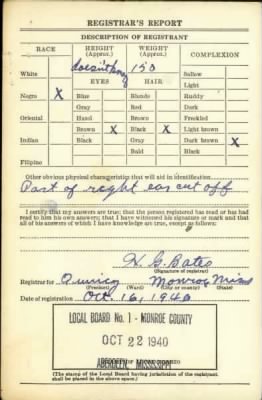 REGISTRAR'S REPORT
DESCRIPTION OF REGISTRANT
RACE HEIGHT (Approx.) WEIGHT (Approx.) COMPLEXION
White 150 Sallow
EYES HAIR Light
Negro X Blue Blonde Ruddy
Gray Red Dark
Oriental Hazel Brown Freckled
Brown X Black X Light brown
Indian Black Gray Dark brown X
Bald Black
Filipino
Other obvious physical characteristics that will aid in identification
Part of right ear cut off
I certify that my answers are true; that the person registered has read or has had
read to him his own answers; that I have witnessed his signature or mark and that
all of his answers of which I have knowledge are true, except as follows:
H. G. Bates
(Signature of registrar)
Registrar for Quincy Monroe Miss
(Precinct) (Ward) (City or county) (State)
Date of registration Oct. 16, 1940
LOCAL BOARD No. 1 - MONROE COUNTY
OCT 22 1940
ABERDEEN, MISSISSIPPI
(The stamp of the Local Board having jurisdiction of the registrant
shall be placed in the above space.)